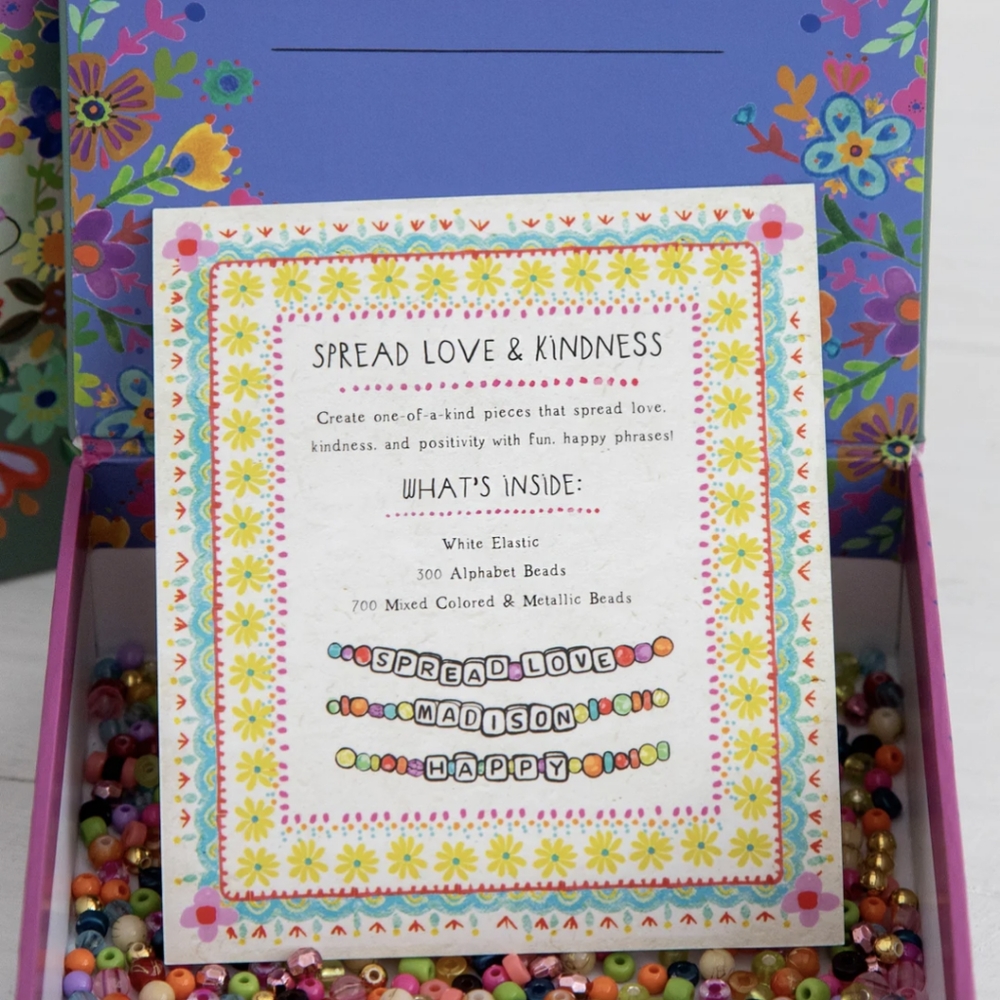 SPREAD LOVE & KINDNESS
Create one-of-a-kind pieces that spread love,
kindness, and positivity with fun, happy phrases!
WHAT'S INSIDE:
White Elastic
300 Alphabet Beads
700 Mixed Colored & Metallic Beads
SPREAD LOVE
MADISON
HAPPY